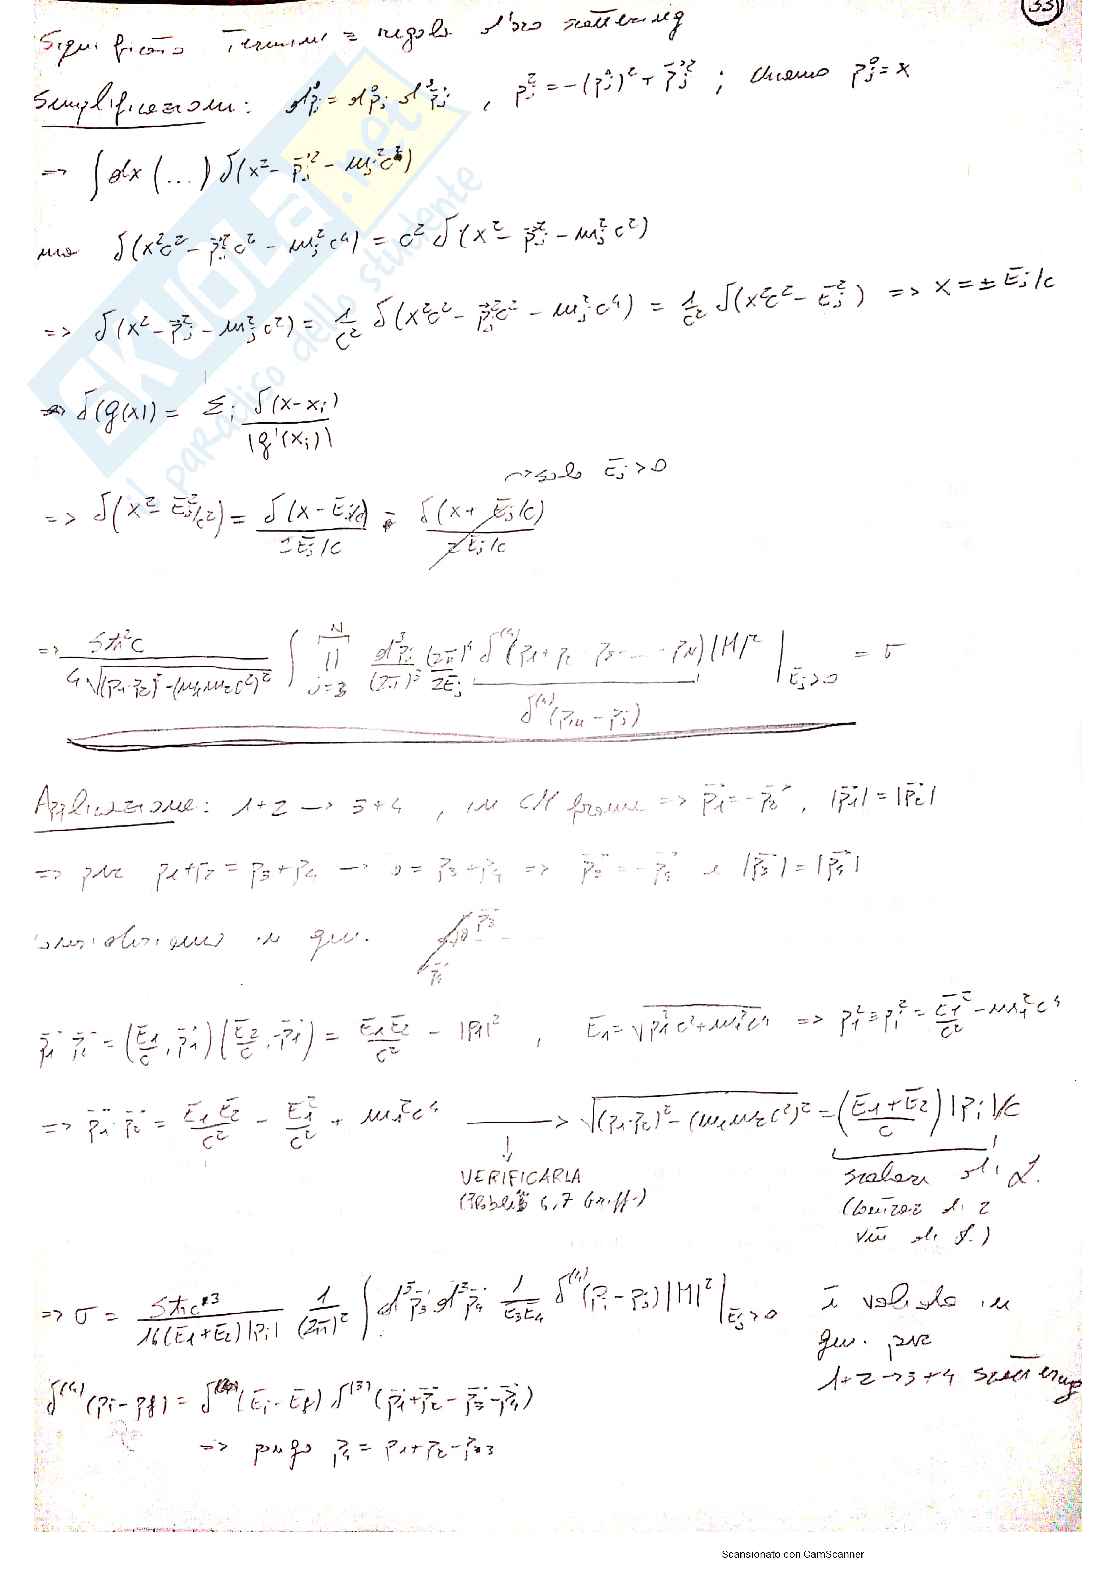 33
Significato Termini = regola d'oro scattering
Semplificazioni: d⁴pⱼ = dpⱼ⁰ d³p⃗ⱼ , pⱼ² = -(pⱼ⁰)² + p⃗ⱼ² ; chiamo pⱼ⁰ = x
=> ∫dx (...) δ(x² - p⃗ⱼ² - mⱼ²c²)
ma δ(x²c² - p⃗ⱼ²c² - mⱼ²c⁴) = c² δ(x² - p⃗ⱼ² - mⱼ²c²)
=> δ(x² - p⃗ⱼ² - mⱼ²c²) = 1/c² δ(x²c² - p⃗ⱼ²c² - mⱼ²c⁴) = 1/c² δ(x²c² - Eⱼ²) => x = ± Eⱼ/c
=> δ(g(x)) = Σᵢ δ(x-xᵢ) / |g'(xᵢ)|
~> solo Eⱼ > 0
=> δ(x² - Eⱼ²/c²) = δ(x - Eⱼ/c) / 2Eⱼ/c + δ(x + Eⱼ/c) / 2Eⱼ/c
=> Sħ²c / 4√((p₁·p₂)² - (m₁m₂c²)²) ∫ ∏ⱼ₌₃ᴺ d³pⱼ/(2π)³ (2π)⁴/2Eⱼ δ⁽⁴⁾(p₁+p₂-p₃-...-p_N) |M|² |Eⱼ>0 = σ
δ⁽⁴⁾(pᵢₙ - pⱼ)
Applicazione: 1+2 → 3+4 , in CM frame => p⃗₁ = -p⃗₂ , |p⃗₁| = |p⃗₂|
=> per p₁+p₂ = p₃+p₄ → 0 = p⃗₃+p⃗₄ => p⃗₃ = -p⃗₄ e |p⃗₃| = |p⃗₄|
consideriamo in gen. p⃗₃
p⃗₁
p₁·p₂ = (E₁/c, p⃗₁)(E₂/c, -p⃗₁) = E₁E₂/c² - |p₁|² , E₁ = √(p₁²c²+m₁²c⁴) => p₁² = pᵢ² = E₁²/c² - m₁²c⁴
=> p₁·p₂ = E₁E₂/c² - E₁²/c² + m₁²c⁴ → √((p₁·p₂)² - (m₁m₂c²)²) = (E₁+E₂/c)|pᵢ|/c
VERIFICARLA
(Problema 6,7 Griff.)
scalari di L.
(
=> σ = Sħc³ / 16(E₁+E₂)|pᵢ| 1/(2π)² ∫ d³p⃗₃ d³p⃗₄ 1/E₃E₄ δ⁽⁴⁾(pᵢ - pⱼ) |M|² |Eⱼ>0
è valido in
gen. per
1+2→3+4 scattering
δ⁽⁴⁾(pᵢ - p_f) = δ(Eᵢ - E_f) δ⁽³⁾(p⃗₁+p⃗₂-p⃗₃-p⃗₄)
=> pongo p₄ = p₁+p₂-p₃
SKUOLA.net
il paradiso dello studente
Scansionato con CamScanner